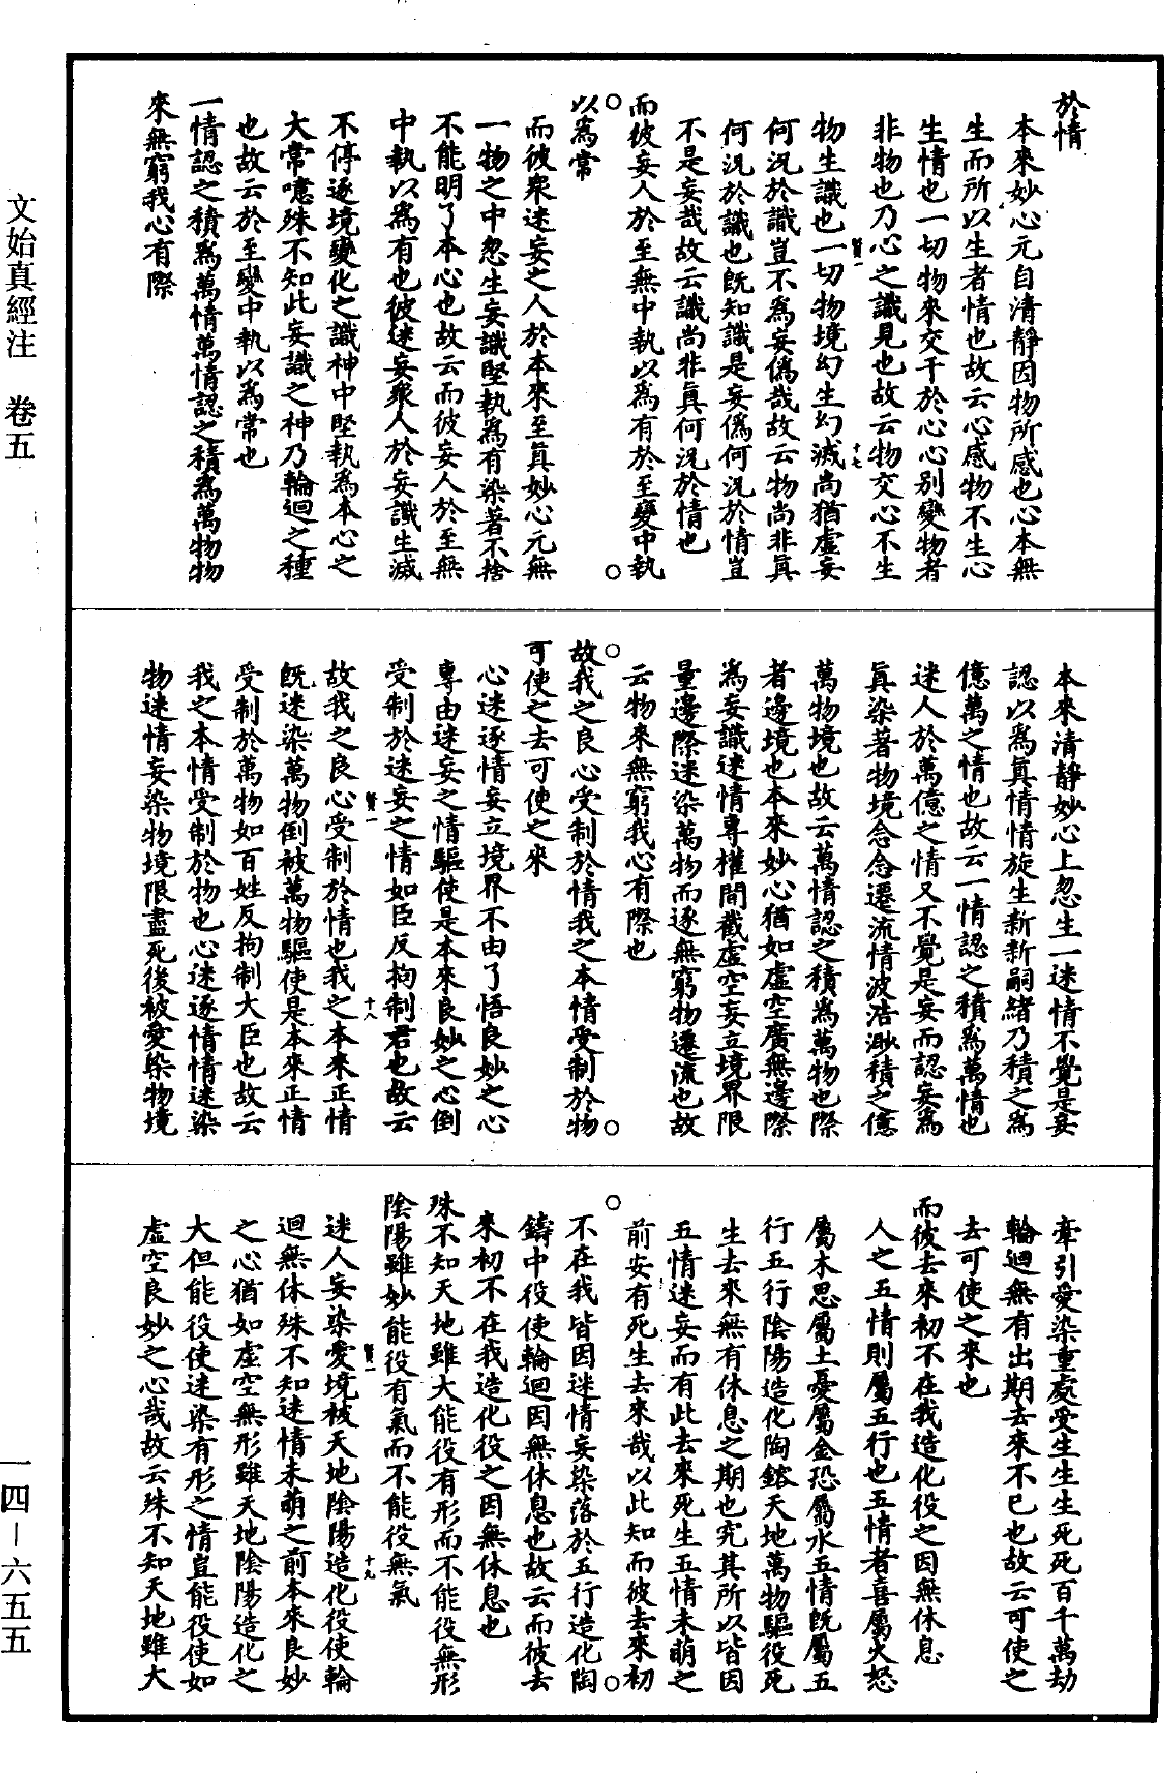 於情
本來妙心元自清靜因物所感也心本無
生而所以生者情也故云心感物不生心
生情也一切物來交于於心心別變物者
非物也乃心之識見也故云物交心不生
物生識也一切物境幻生幻滅尚猶虛妄
何況於識豈不為妄僞哉故云物尚非真
何況於識也既知識是妄僞何況於情豈
不是妄哉故云識尚非真何況於情也
而彼妄人於至無中執以為有於至變中執
以為常
而彼衆迷妄之人於本來至真妙心元無
一物之中忽生妄識堅執為有染著不捨
不能明了本心也故云而彼妄人於至無
中執以為有也彼迷妄衆人於妄識生滅
不停逐境變化之識神中堅執為本心之
大常噫殊不知此妄識之神乃輪迴之種
也故云於至變中執以為常也
一情認之積為萬情萬情認之積為萬物物
來無窮我心有際
本來清靜妙心上忽生一迷情不覺是妄
認以為真情情旋生新新嗣緒乃積之為
億萬之情也故云一情認之積為萬情也
迷人於萬億之情又不覺是妄而認妄為
真染著物境念念遷流情波浩渺積之億
萬物境也故云萬情認之積為萬物也際
者邊境也本來妙心猶如虛空廣無邊際
為妄識迷情專權間截虛空妄立境界限
量邊際迷染萬物而逐無窮物遷流也故
云物來無窮我心有際也
故我之良心受制於情我之本情受制於物
可使之去可使之來
心迷逐情妄立境界不由了悟良妙之心
專由迷妄之情驅使是本來良妙之心倒
受制於迷妄之情如臣反拘制君也故云
故我之良心受制於情也我之本來正情
既迷染萬物倒被萬物驅使是本來正情
受制於萬物如百姓反拘制大臣也故云
我之本情受制於物也心迷逐情情迷染
物迷情妄染物境限盡死後被愛染物境
牽引愛染重處受生生生死死百千萬劫
輪迴無有出期去來不已也故云可使之
去可使之來也
而彼去來初不在我造化役之因無休息
人之五情則屬五行也五情者喜屬火怒
屬木思屬土憂屬金恐屬水五情既屬五
行五行陰陽造化陶鎔天地萬物驅役死
生去來無有休息之期也究其所以皆因
五情迷妄而有此去來死生五情未萌之
前安有死生去來哉以此知而彼去來初
不在我皆因迷情妄染落於五行造化陶
鑄中役使輪迴因無休息也故云而彼去
來初不在我造化役之因無休息也
殊不知天地雖大能役有形而不能役無形
陰陽雖妙能役有氣而不能役無氣
迷人妄染愛境被天地陰陽造化役使輪
迴無休殊不知迷情未萌之前本來良妙
之心猶如虛空無形雖天地陰陽造化之
大但能役使迷染有形之情豈能役使如
虛空良妙之心哉故云殊不知天地雖大
賢一
十七
賢一
十八
賢一
十九
文始真經注 卷五
一四—六五五